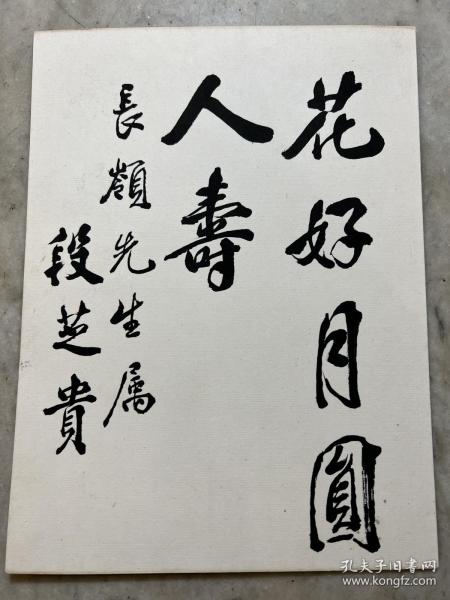 花好月圓
人壽
長嶺先生属
段芝貴
孔夫子旧书网
www.kongfz.com